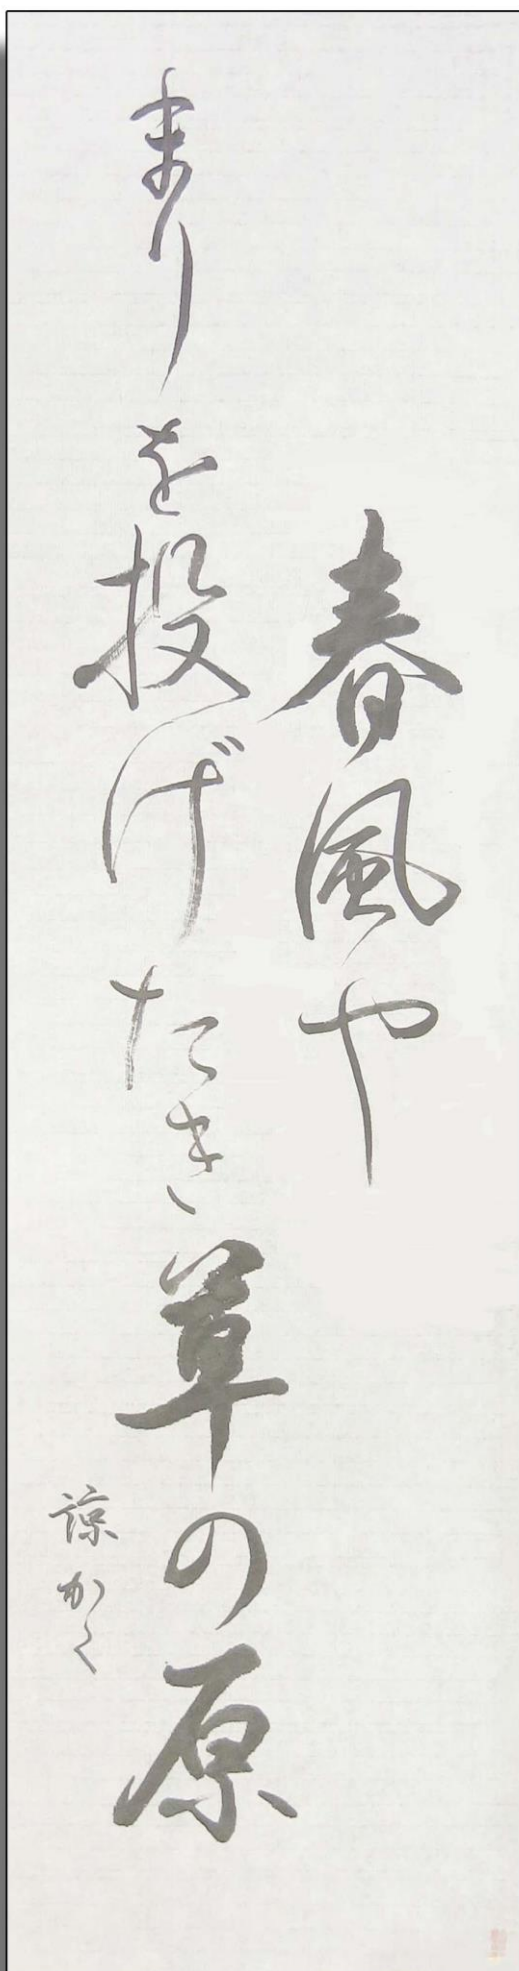 春風や
まりを投げたき草の原
諒かく